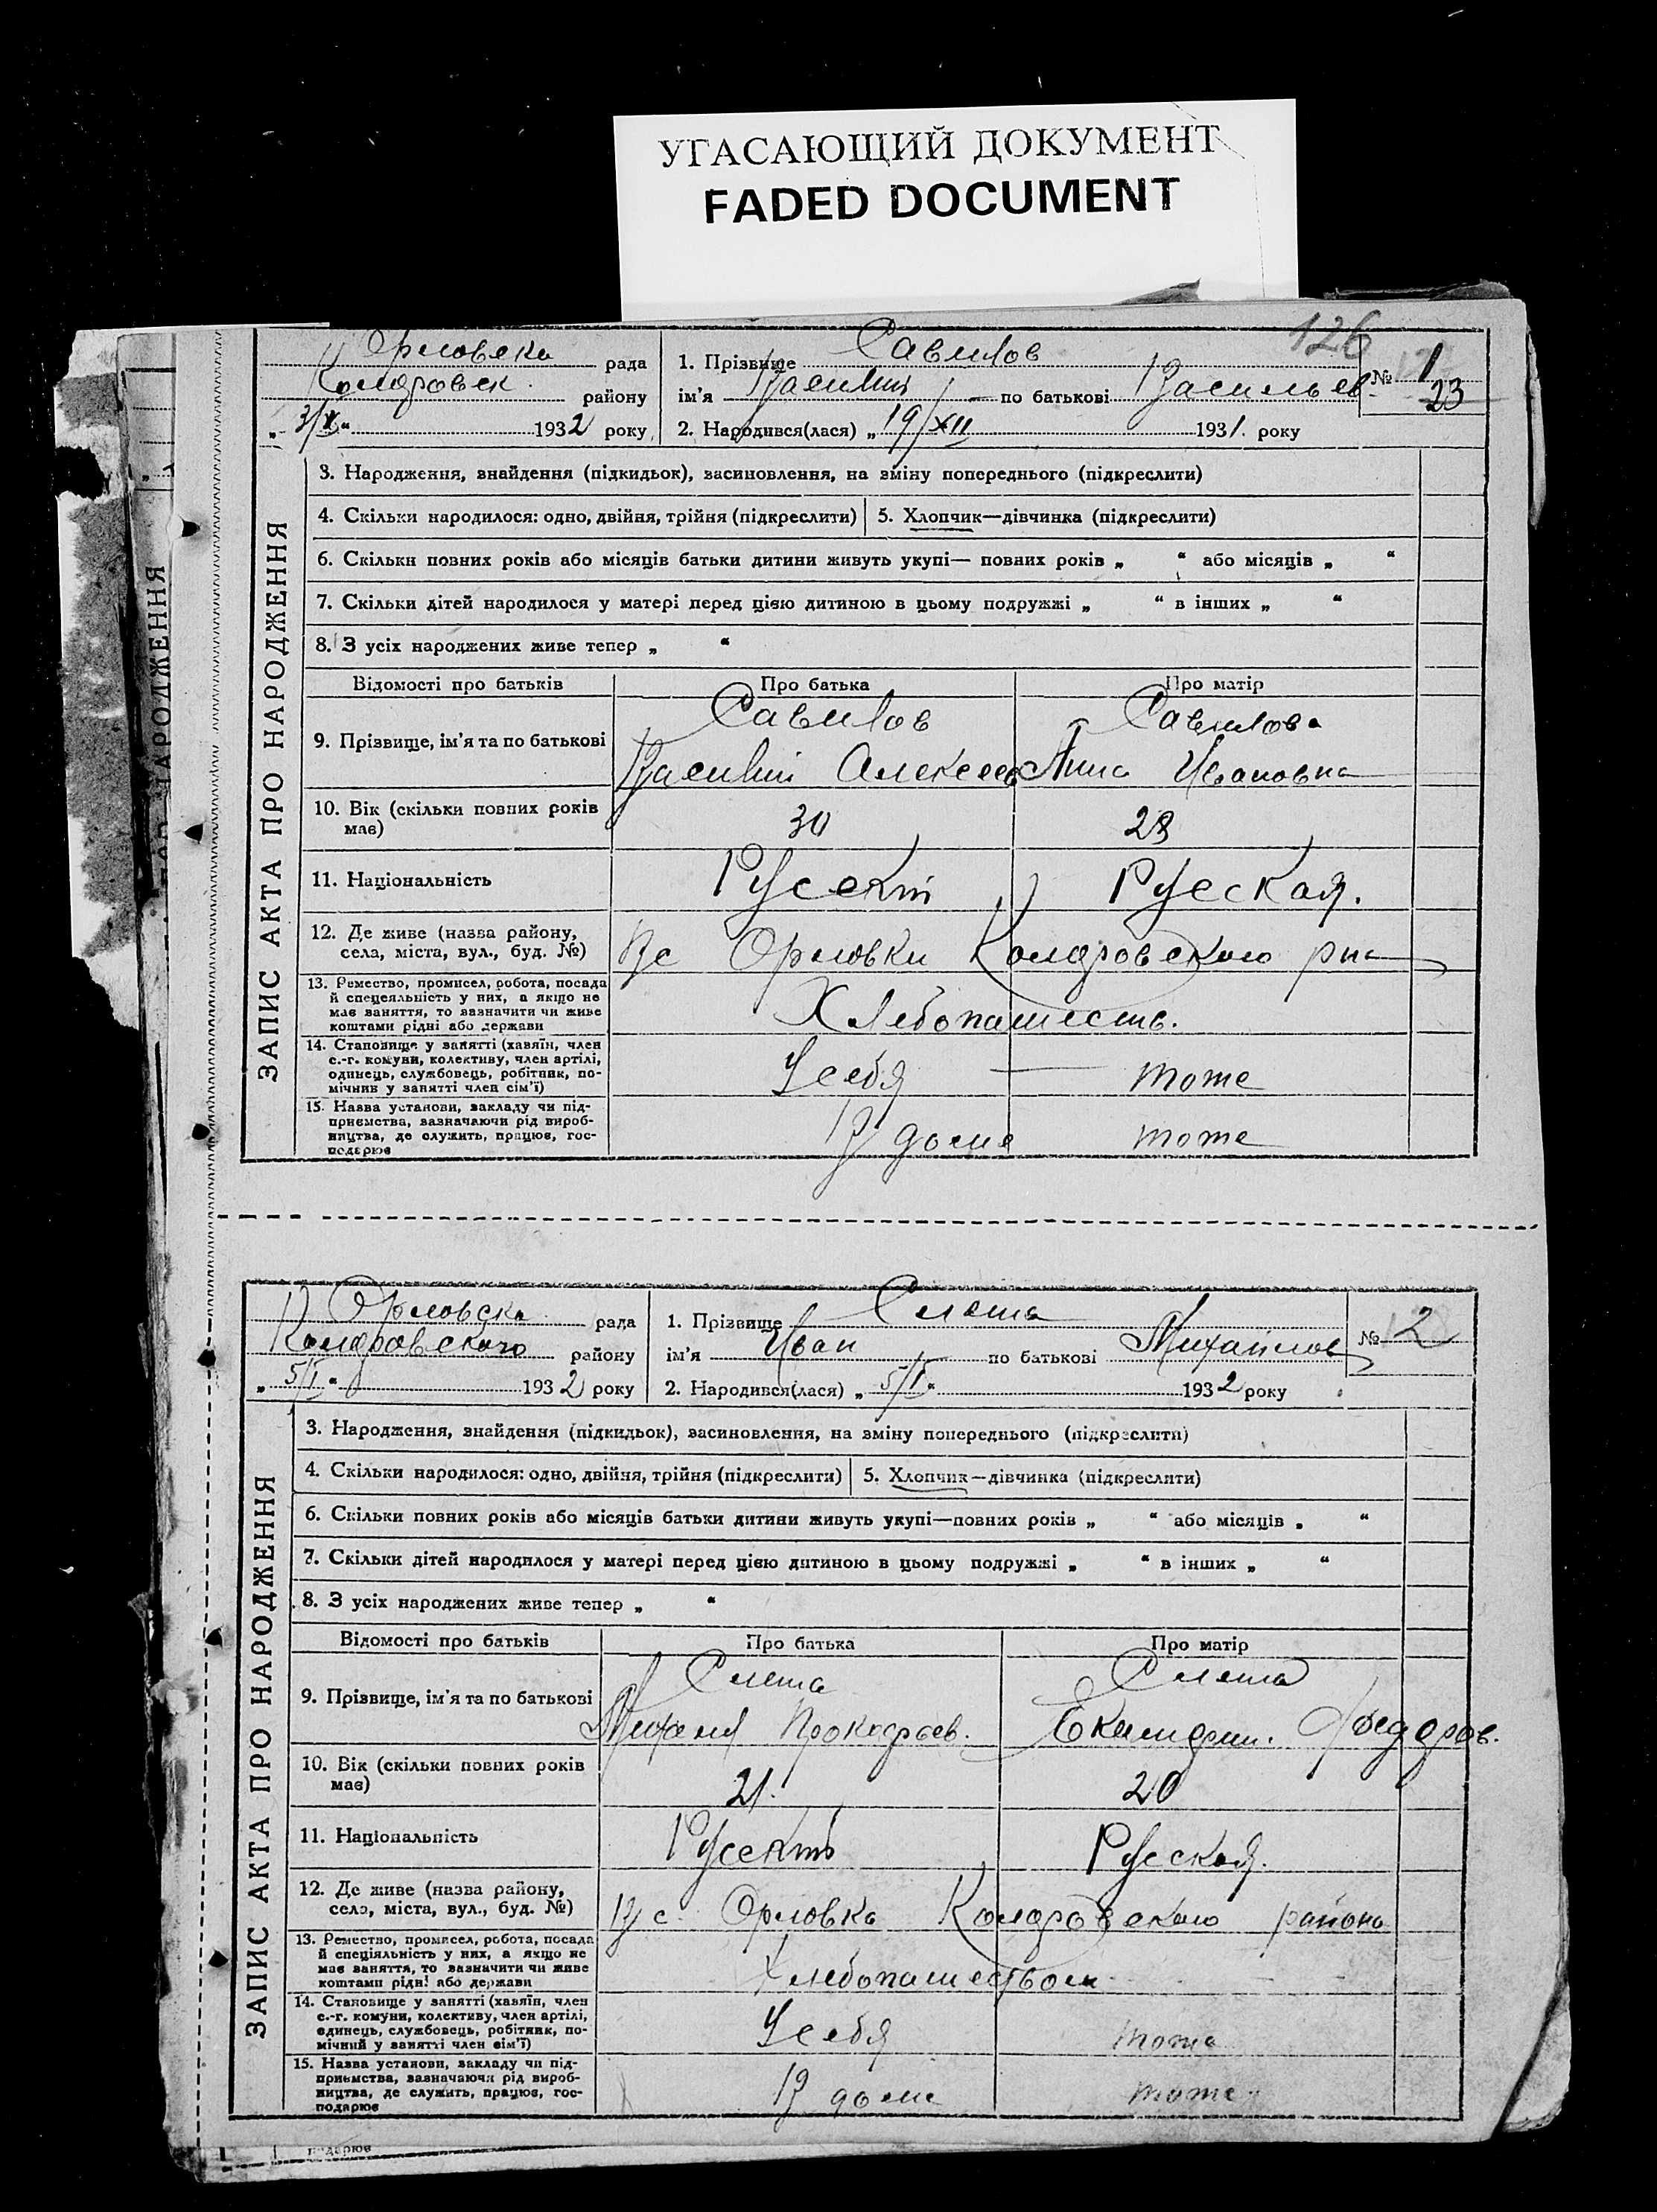 УГАСАЮЩИЙ ДОКУМЕНТ
FADED DOCUMENT
126
Орловска рада
района району
"3/I" 1932 року
1. Прізвище Савилов
ім'я Василий по батькові Васильев
2. Народився(лася) "19/XII 1931. року
№ 1
23
ЗАПИС АКТА ПРО НАРОДЖЕННЯ
3. Народження, знайдення (підкидьок), засиновлення, на зміну попереднього (підкреслити)
4. Скільки народилося: одно, двійня, трійня (підкреслити)
5. Хлопчик—дівчинка (підкреслити)
6. Скільки повних років або місяців батьки дитини живуть укупі— повних років „ “ або місяців „ “
7. Скільки дітей народилося у матері перед цією дитиною в цьому подружжі „ “ в інших „ “
8. З усіх народжених живе тепер „ “
Відомості про батьків Про батька Про матір
9. Прізвище, ім'я та по батькові
Савилов
Василий Алексеев
Савилова
Анна Ивановна
10. Вік (скільки повних років
має)
30 28
11. Національність Руский Руеская.
12. Де живе (назва району,
села, міста, вул., буд. №)
В с Орловки рна
13. Ремество, промисел, робота, посада
й спецеяльність у них, а якщо не
має заняття, то зазначити чи живе
коштами рідні або держави
Хлебопашеств.
14. Становище у занятті (хазяїн, член
с.-г. комуни, колективу, член артілі,
одинець, службовець, робітник, по-
мічник у занятті член сім'ї)
У себя — тоже
15. Назва установи, закладу чи під-
приємства, зазначаючи рід вироб-
ництва, де служить, працює, гос-
подарює
В доме тоже
Орловска рада
району
"5/I" 1932 року
1. Прізвище
ім'я Иван по батькові Михайлов
2. Народився(лася) "5/I" 1932 року
№ 2
ЗАПИС АКТА ПРО НАРОДЖЕННЯ
3. Народження, знайдення (підкидьок), засиновлення, на зміну попереднього (підкреслити)
4. Скільки народилося: одно, двійня, трійня (підкреслити)
5. Хлопчик—дівчинка (підкреслити)
6. Скільки повних років або місяців батьки дитини живуть укупі—повних років „ “ або місяців „ “
7. Скільки дітей народилося у матері перед цією дитиною в цьому подружжі „ “ в інших „ “
8. З усіх народжених живе тепер „ “
Відомості про батьків Про батька Про матір
9. Прізвище, ім'я та по батькові
Михаил Прокофьев.
Федоров.
10. Вік (скільки повних років
має)
21. 20
11. Національність Руский Руская.
12. Де живе (назва району,
село, міста, вул., буд. №)
В с. Орловка района
13. Ремество, промисел, робота, посада
й спеціяльність у них, а якщо не
має заняття, то зазначити чи живе
коштами рідні або держави
Хлебопашеством
14. Становище у занятті (хазяїн, член
с.-г. комуни, колективу, член артілі,
одинець, службовець, робітник, по-
мічний у занятті член сім'ї)
У себя тоже
15. Назва установи, закладу чи під-
приємства, зазначаючи рід вироб-
ництва, де служить, працює, гос-
подарює
В доме тоже
подарює